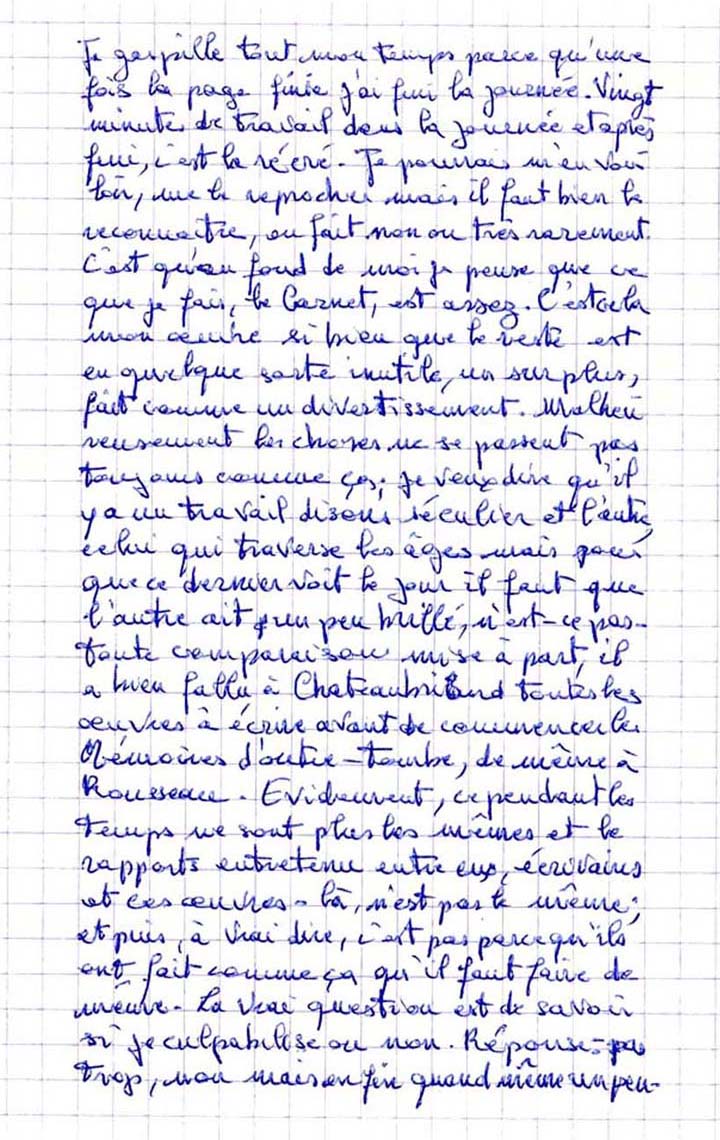 Je gaspille tout mon temps parce qu'une
fois la page finie j'ai fini la journée. Vingt
minutes de travail dans la journée et après
fini, c'est la récré. Je pourrais m'en vou-
loir, me le reprocher mais il faut bien le
reconnaître, en fait non ou très rarement.
C'est qu'au fond de moi je pense que ce
que je fais, le Carnet, est assez. C'est cela
mon œuvre si bien que le reste est
en quelque sorte inutile, un surplus,
fait comme un divertissement. Malheu
reusement les choses ne se passent pas
toujours comme ça; je veux dire qu'il
y a un travail disons séculier et l'autre,
celui qui traverse les âges mais pour
que ce dernier voit le jour il faut que
l'autre ait un peu brillé, n'est-ce pas-
toute comparaison mise à part, il
a bien fallu à Chateaubriand toutes les
œuvres à écrire avant de commencer les
Mémoires d'outre-tombe, de même à
Rousseau. Evidemment, cependant les
temps ne sont plus les mêmes et le
rapports entretenu entre eux, écrivains
et ces œuvres-là, n'est pas le même;
et puis, à vrai dire, c'est pas parce qu'ils
ont fait comme ça qu'il faut faire de
même. La vrai question est de savoir
si je culpabilise ou non. Réponse: pas
trop, non mais enfin quand même un peu-